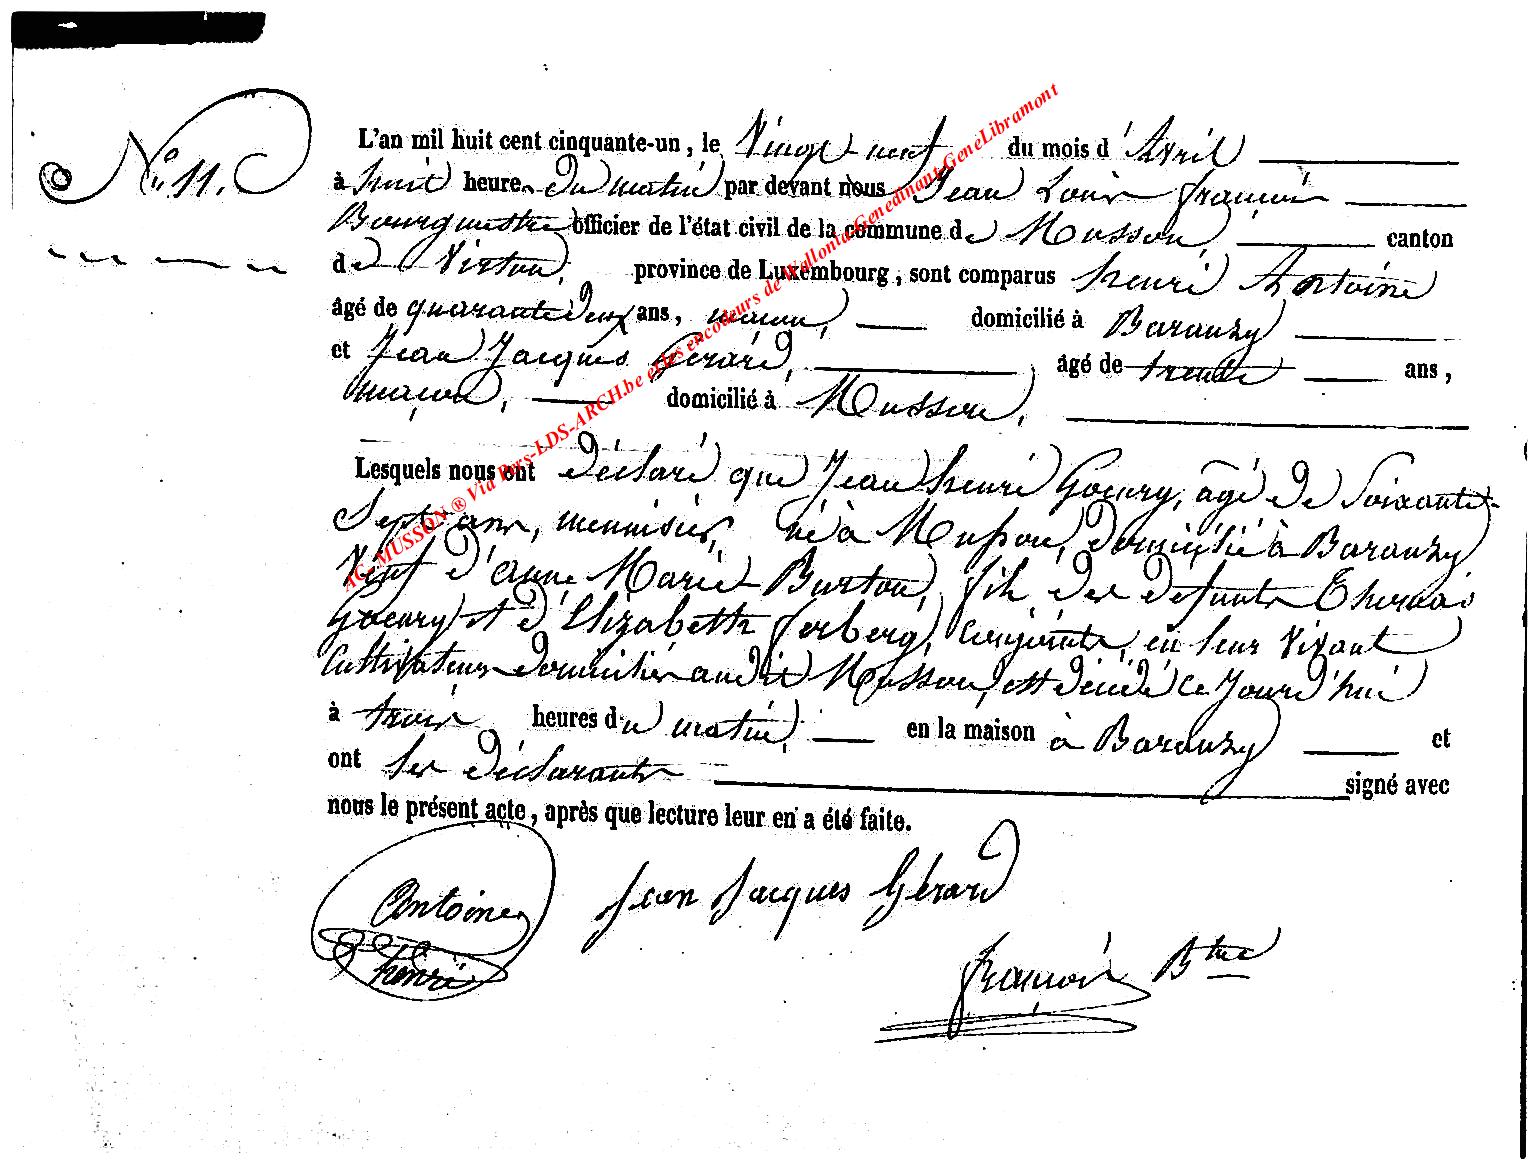 N° 11.
L'an mil huit cent cinquante-un, le Vingt neuf du mois d'Avril
à huit heures du matin par devant nous Jean Louis françois
Bourgmestre officier de l'état civil de la commune de Musson, canton
de Virton, province de Luxembourg, sont comparus henri Antoine
âgé de quarante deux ans, maçon, domicilié à Baranzy
et Jean Jacques Gérard, âgé de trente ans,
maçon, domicilié à Musson,
Lesquels nous ont déclaré que Jean henri Goeury, âgé de Soixante
Sept ans, menuisier, né à Musson, domicilié à Baranzy
Veuf d'anne Marie Burton, fils des defunts
Goeury et d'Elizabeth ferberg, conjoints, en leur vivant
Cultivateurs domiciliés audit Musson, est décédé ce Jourd'hui
à trois heures du matin, en la maison à Baranzy et
ont les déclarants signé avec
nous le présent acte, après que lecture leur en a été faite.
Antoine Jean Jacques Gérard
henri
françois Btre
AG-MUSSON ® Via Pers-LDS-ARCH.be et les encodeurs de Wallonia-Genedinant-GeneLibramont